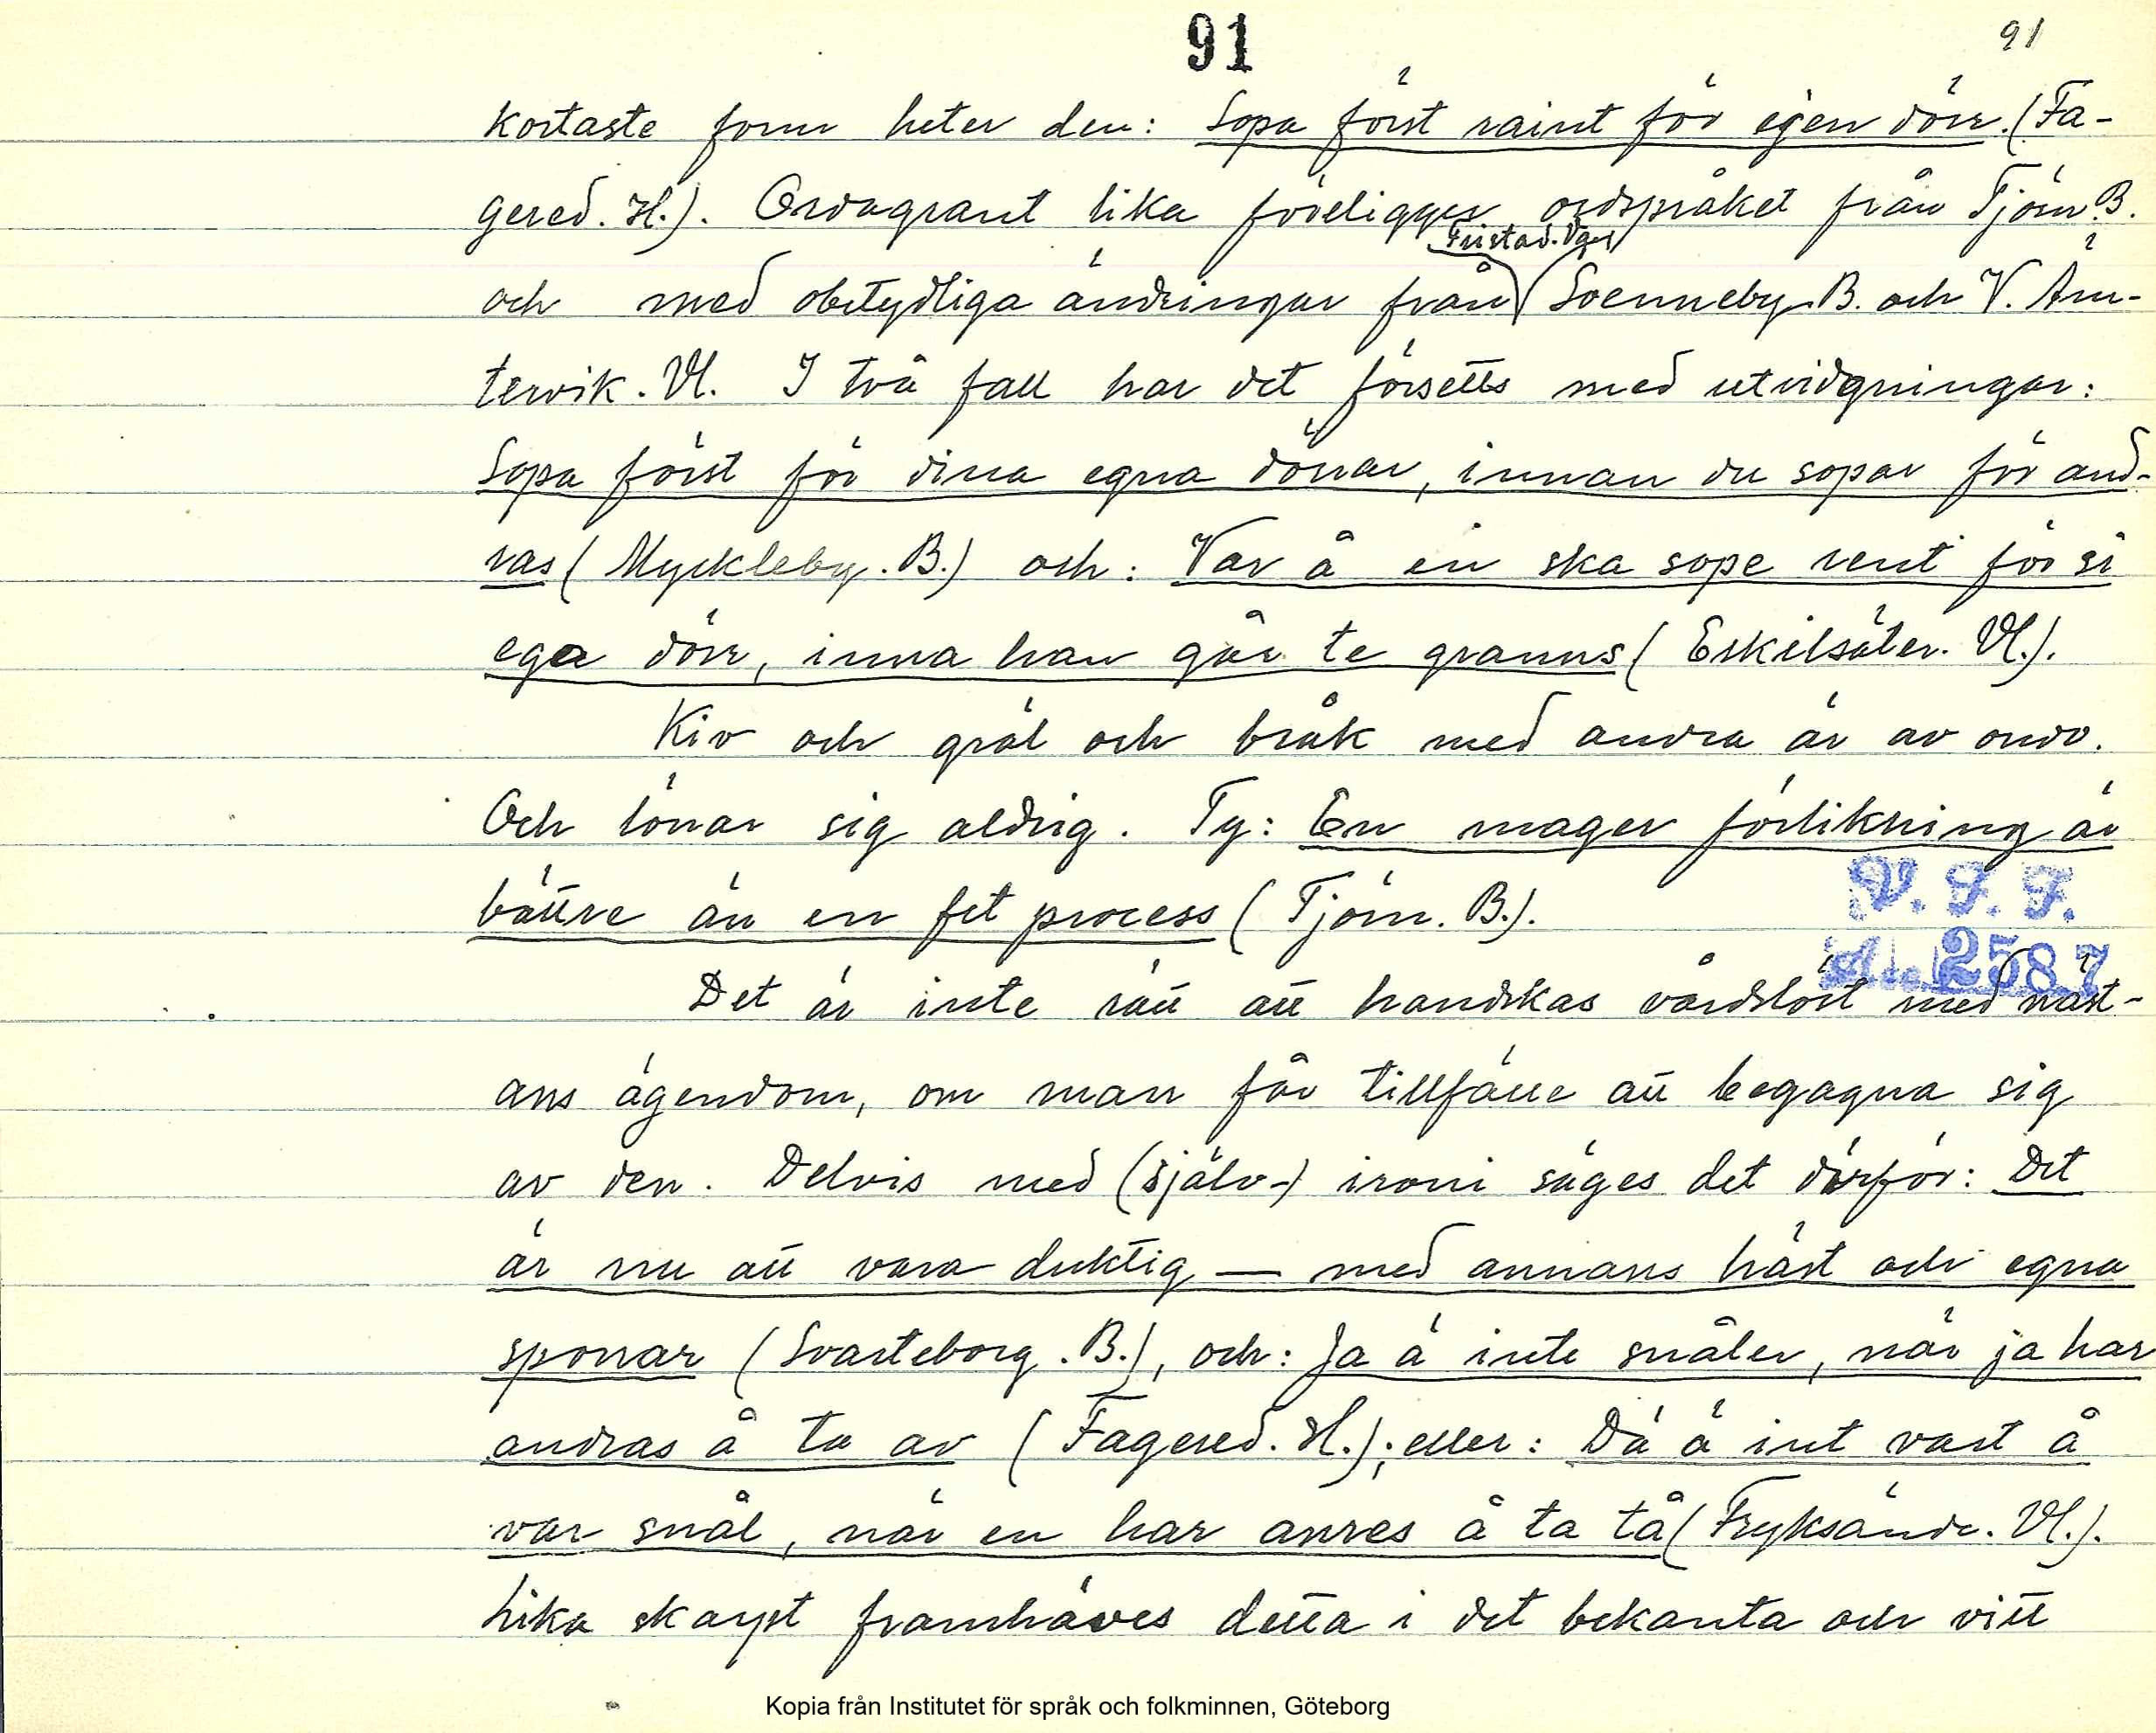 91
91
kortaste form heter den: Sopa först raint för egen dörr. (Fa-
gered. H.). Ordagrant lika föreligger ordspråket från Tjörn. B.
Fristad. Vgs
och med obetydliga ändringar från Svenneby B. och V. Äm-
tervik. Vl. I två fall har det försetts med utvidgningar:
Sopa först för dina egna dörrar, innan du sopar för and-
ras (Myckleby. B.) och: Var å en ska sope rent för si
ega dörr, inna han går te granns (Eskilsäter. Vl.).
Kiv och gräl och bråk med andra är av ondo.
Och lönar sig aldrig. Ty: En mager förlikning är
bättre än en fet process (Tjörn. B.).
V. F. F.
2587
Det är inte rätt att handskas vårdslöst med näst-
ans ägendom, om man får tillfälle att begagna sig
av den. Delvis med (själv-) ironi säges det därför: Det
är nu att vara duktig — med annans häst och egna
sporrar (Svarteborg. B.), och: Ja ä inte snåler, när ja har
andras å ta av (Fagered. H.); eller: Dä ä int vart å
var snål, när en har anres å ta tå (Fryksände. Vl.).
Lika skarpt framhäves detta i det bekanta och vitt
Kopia från Institutet för språk och folkminnen, Göteborg